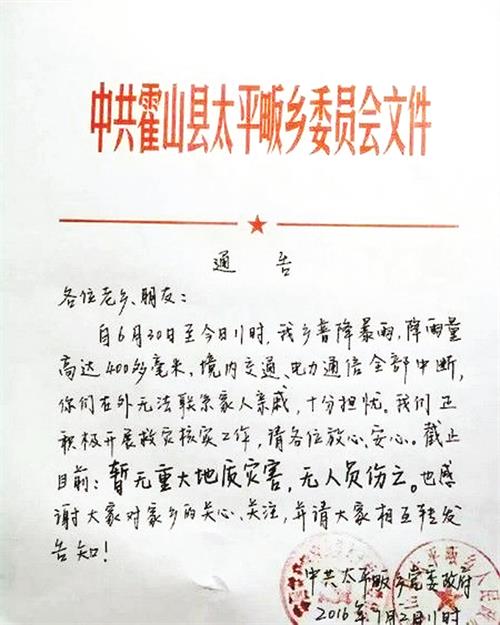 中共霍山县太平畈乡委员会文件
通告
各位老乡、朋友：
自6月30日至今日11时，我乡普降暴雨，降雨量
高达400多毫米，境内交通、电力通信全部中断，
你们在外无法联系家人亲戚，十分担忧。我们正
积极开展救灾核实工作，请各位放心、安心。截止
目前：暂无重大地质灾害，无人员伤亡。也感
谢大家对家乡的关心、关注，并请大家相互转发
告知！
中共太平畈乡党委政府
2016年7月2日11时